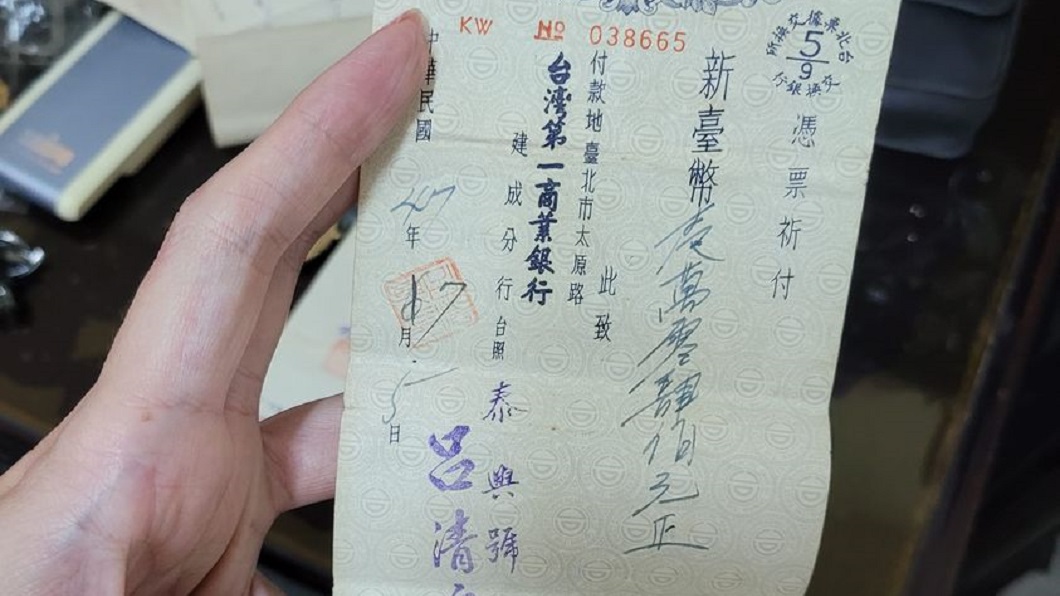 KW № 038665
台北票據交換所
5/9
交換銀行
憑票祈付
新臺幣壹萬零肆佰元正
此致
付款地臺北市太原路
台灣第一商業銀行
建成分行台照
泰興號
呂清
中華民國 年 月 日